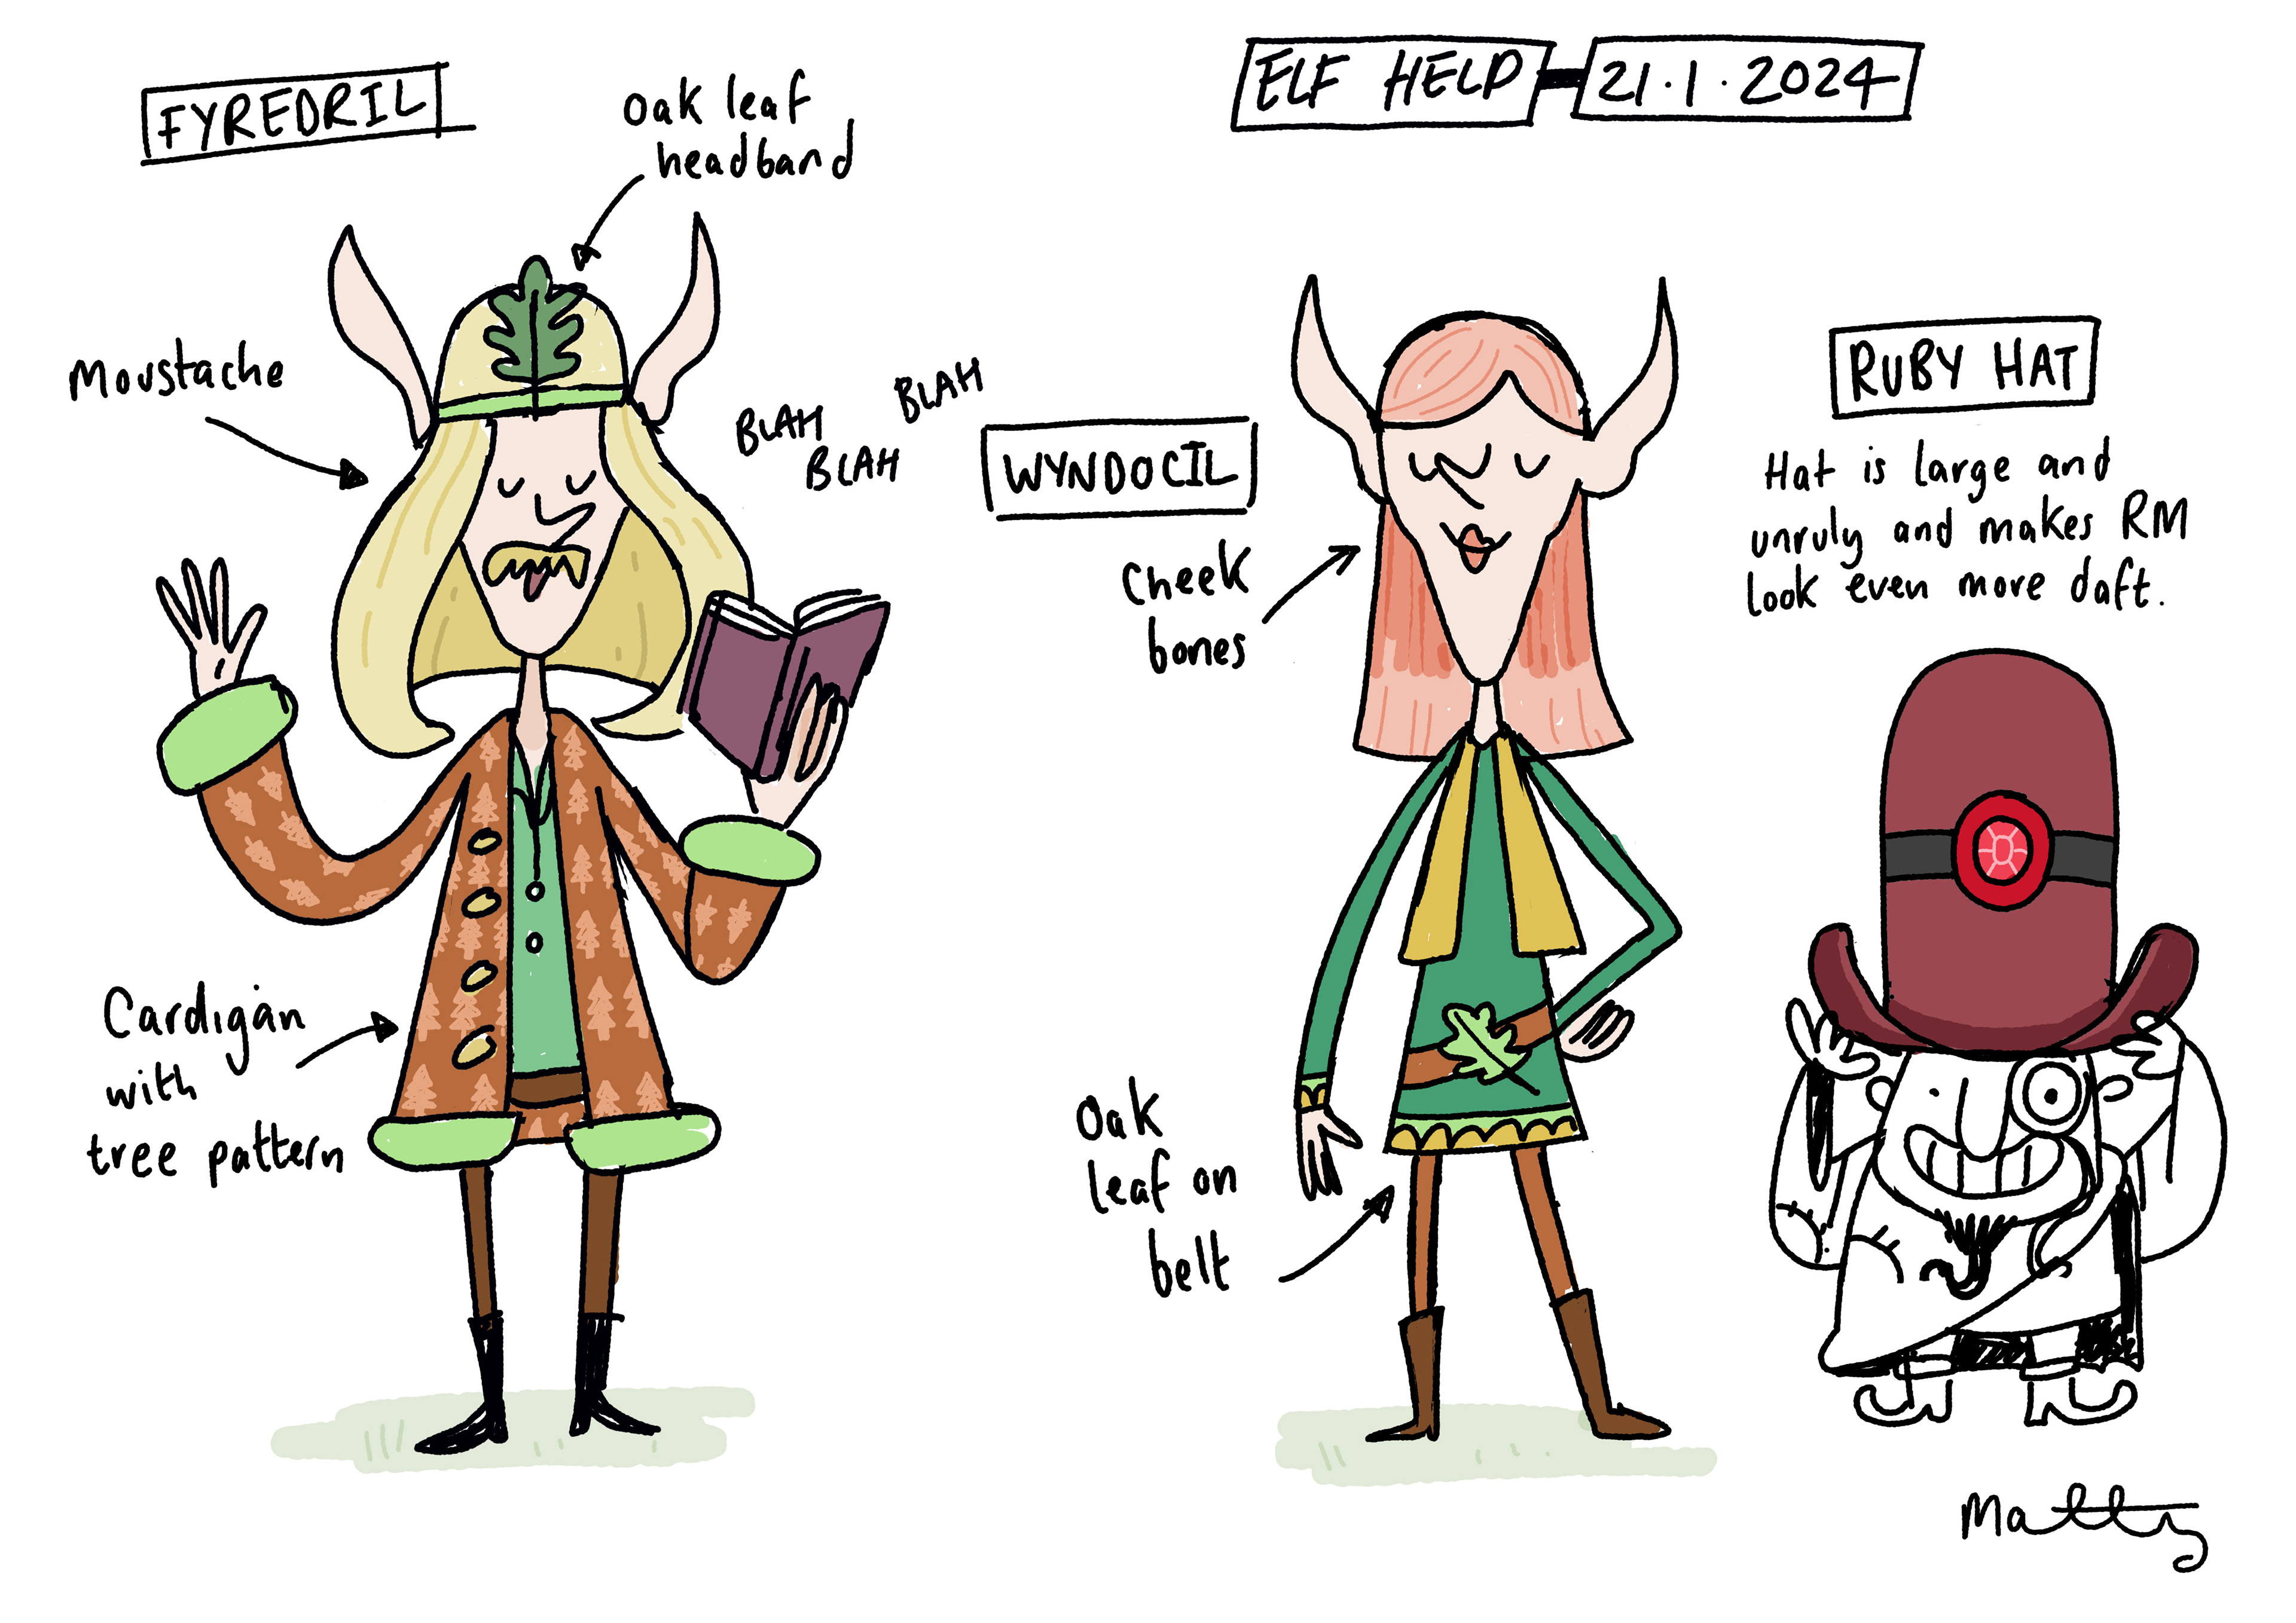 FYREDRIL
Oak leaf
headband
Moustache
BLAH
BLAH
BLAH
Cardigan
with
tree pattern
ELF HELP - 21.1.2024
WYNDOCIL
Cheek
bones
Oak
leaf on
belt
RUBY HAT
Hat is large and
unruly and makes RM
look even more daft.
Matty